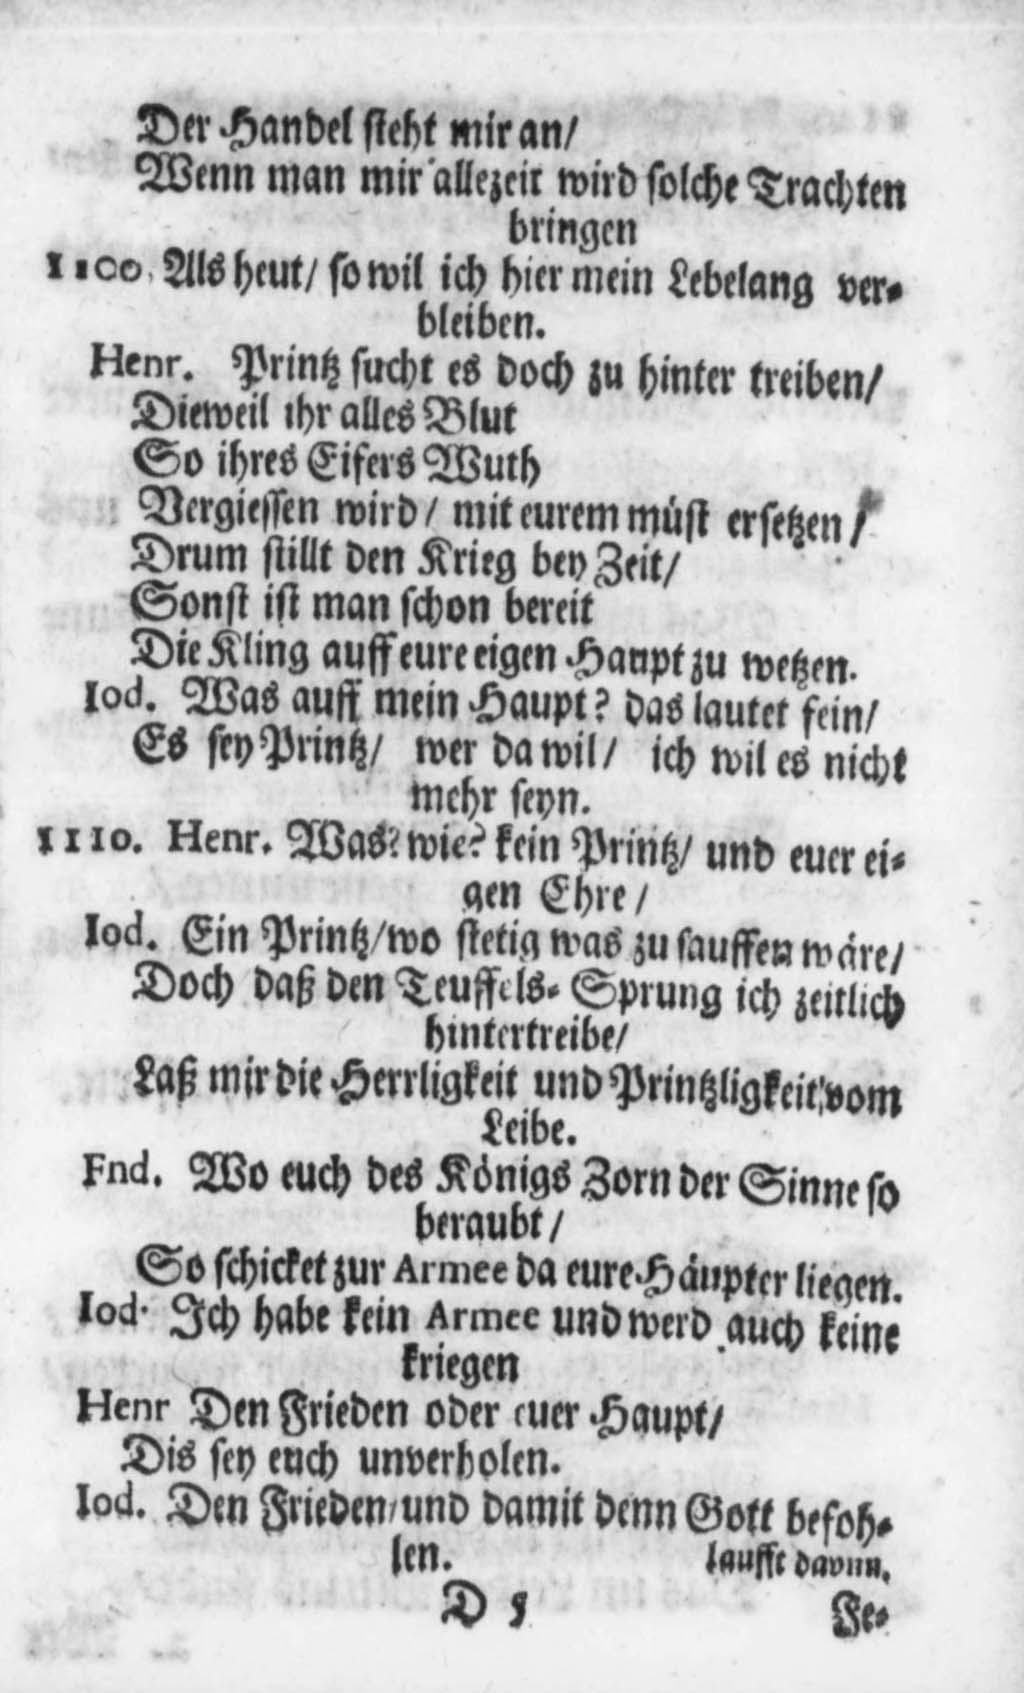 Der Handel steht mir an/
Wenn man mir allezeit wird solche Trachten
bringen
1100. Als heut/ so wil ich hier mein Lebelang ver-
bleiben.
Henr. Printz sucht es doch zu hinter treiben/
Dieweil ihr alles Blut
So ihres Eifers Wuth
Vergiessen wird/ mit eurem müst ersetzen/
Drum stillt den Krieg bey Zeit/
Sonst ist man schon bereit
Die Kling auff eure eigen Haupt zu wetzen.
Iod. Was auff mein Haupt? das lautet fein/
Es sey Printz/ wer da wil/ ich wil es nicht
mehr seyn.
1110. Henr. Was? wie? kein Printz/ und euer ei-
gen Ehre/
Iod. Ein Printz/ wo stetig was zu sauffen wäre/
Doch daß den Teuffels-Sprung ich zeitlich
hintertreibe/
Laß mir die Herrligkeit und Printzligkeit vom
Leibe.
Fnd. Wo euch des Königs Zorn der Sinne so
beraubt/
So schicket zur Armee da eure Häupter liegen.
Iod. Ich habe kein Armee und werd auch keine
kriegen
Henr Den Frieden oder euer Haupt/
Dis sey euch unverholen.
Iod. Den Frieden/ und damit denn Gott befoh-
len. laufft davun.
D 5 Fe-